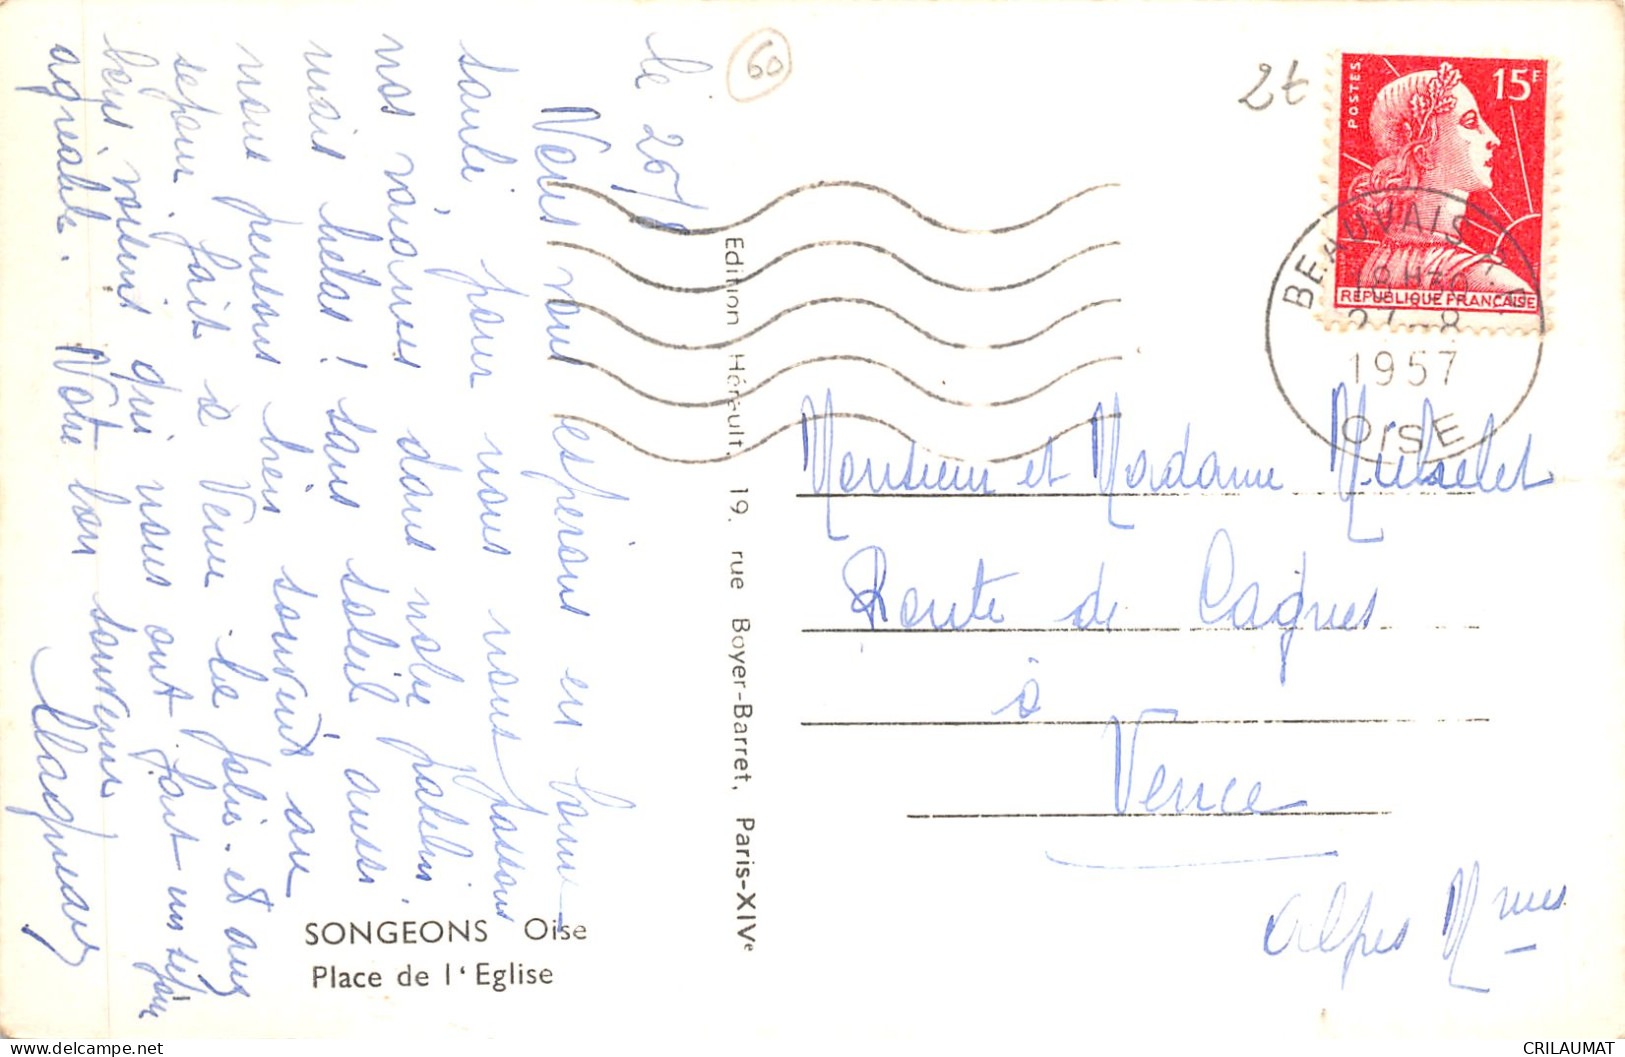 le 26/8
Vous vous espérons en bonne
santé, pour nous nous passons
nos vacances dans notre patelin,
mais hélas ! sans soleil aussi
nous pensons bien souvent au
séjour fait à Vence. La pluie et aux
bons voisins qui nous ont fait un séjour
agréable. Votre bon souvenir
60
2t
POSTES
15F
REPUBLIQUE FRANÇAISE
BEAUVAIS R.P.
18 H30
27-8
1957
OISE
Edition Hérault, 19, rue Boyer-Barret, Paris-XIVe
Monsieur et Madame
Route de Cagnes
à
Vence
Alpes Mmes
SONGEONS Oise
Place de l'Eglise
delcampe.net
CRILAUMAT